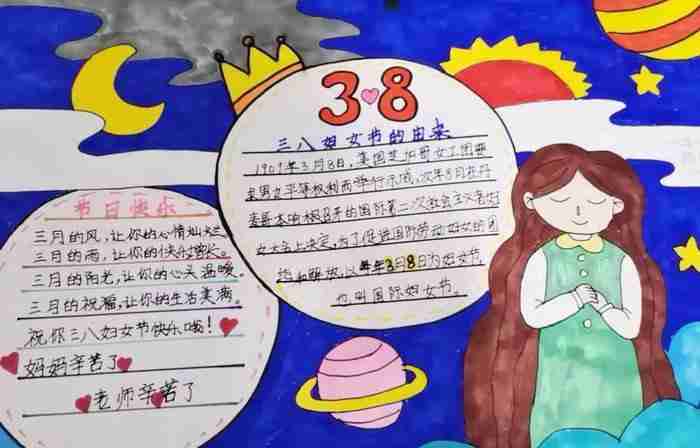 3 8
三八妇女节的由来
1909年3月8日,美国芝加哥女工因要
求男女平等权利而举行示威,次年8月在丹
麦哥本哈根召开的国际第二次社会主义者妇
女大会上决定,为了促进国际劳动妇女的团
结和解放,以每年3月8日为妇女节,
也叫国际妇女节。
节日快乐
三月的风,让你的心情灿烂
三月的雨,让你的快乐增长。
三月的阳光,让你的心头温暖。
三月的祝福,让你的生活美满。
祝你三八妇女节快乐哦!
妈妈辛苦了
老师辛苦了